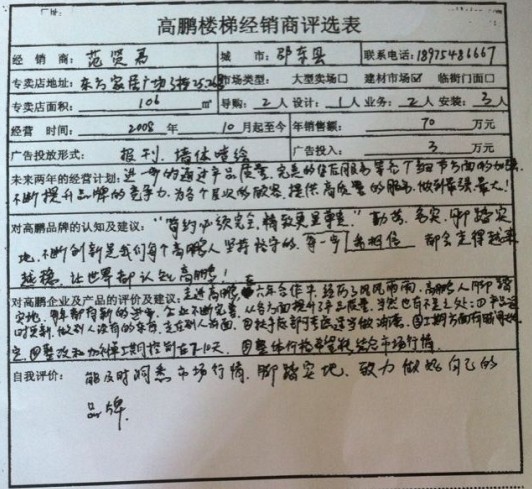 高鹏楼梯经销商评选表
经销商: 范贤君 城市: 邵东县 联系电话: 18975486667
专卖店地址: 东方家居广场 市场类型: 大型卖场□ 建材市场☑ 临街门面□
专卖店面积: 106 ㎡ 导购: 2人 设计: 1人 业务: 2人 安装: 3人
经营时间: 2008年 10月起至今 年销售额: 70 万元
广告投放形式: 报刊、墙体喷绘 广告投入: 3 万元
未来两年的经营计划: 进一步的通过产品质量、完善的售后服务等各个细节方面的加强,
不断提升品牌的竞争力,为各个层次的顾客,提供高质量的服务,做到最强、最大!
对高鹏品牌的认知及建议: "简约必须完美,精致更显尊贵" 勤劳、务实、脚踏实
地、不断创新是我们每个高鹏人坚持恪守的,每一步 我相信 都会走得越来
越稳,让世界都认知高鹏!
对高鹏企业及产品的评价及建议: 走进高鹏 六年合作中,经历了风风雨雨,高鹏人脚踏
实地,每年都有新的进步,企业不断完善,从各方面提升了产品质量,当然也有不足之处:
时更新,做到人没有的我有,走在别人前面,
整改和加急工期控制在7-10天, 整体价格 结合市场行情.
自我评价: 能及时洞悉市场行情,脚踏实地,致力做好自己的
品牌.